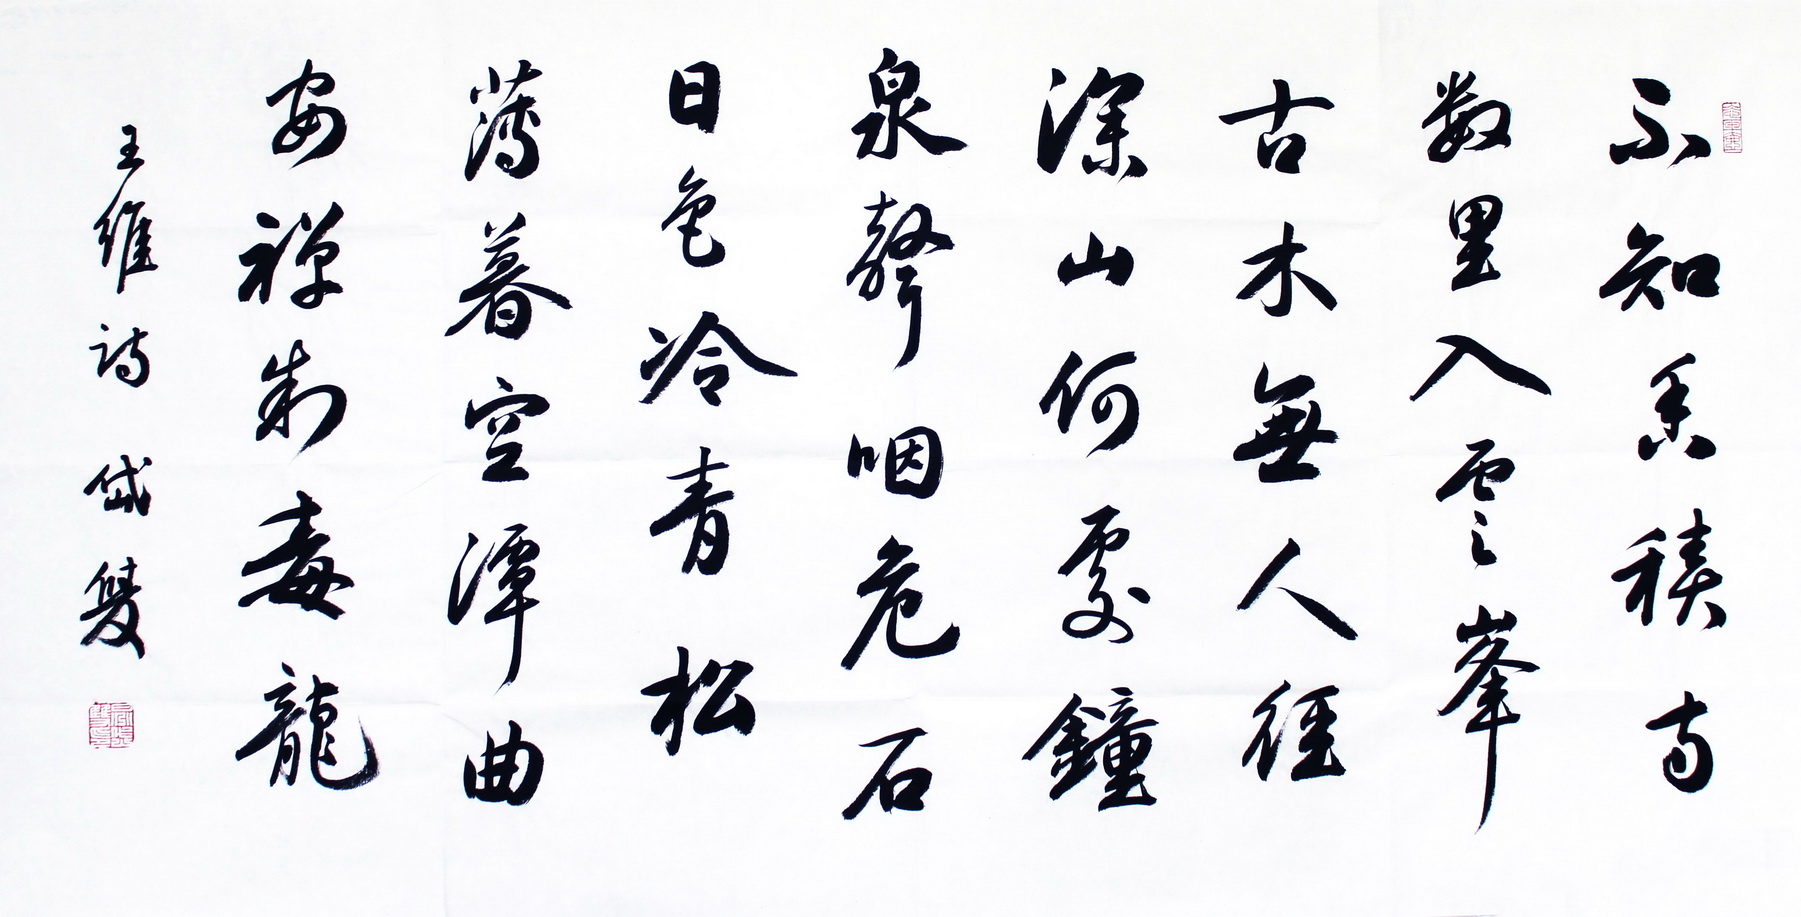 不知香積寺
数里入雲峯
古木無人徑
深山何處鐘
泉聲咽危石
日色冷青松
薄暮空潭曲
安禪制毒龍
王維詩 岱雙